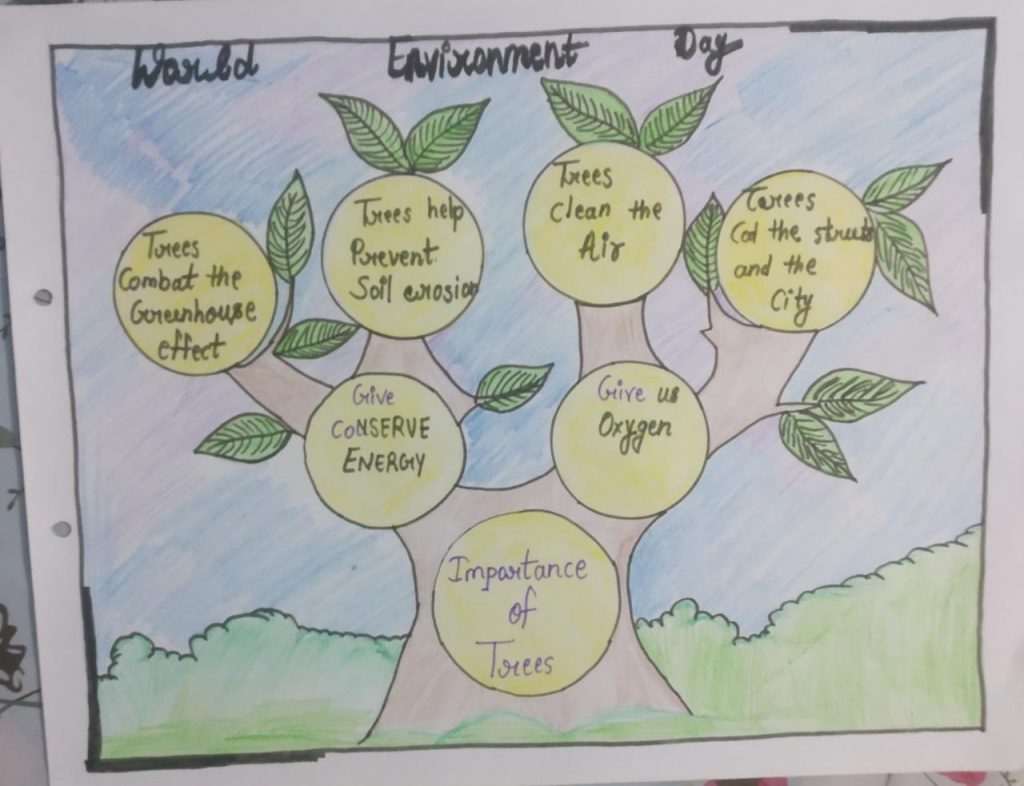 World Environment Day
Trees
Combat the
Greenhouse
effect
Trees help
Prevent
Soil erosion
Trees
Clean the
Air
Trees
Col the streets
and the
City
Give
CONSERVE
ENERGY
Give us
Oxygen
Importance
of
Trees